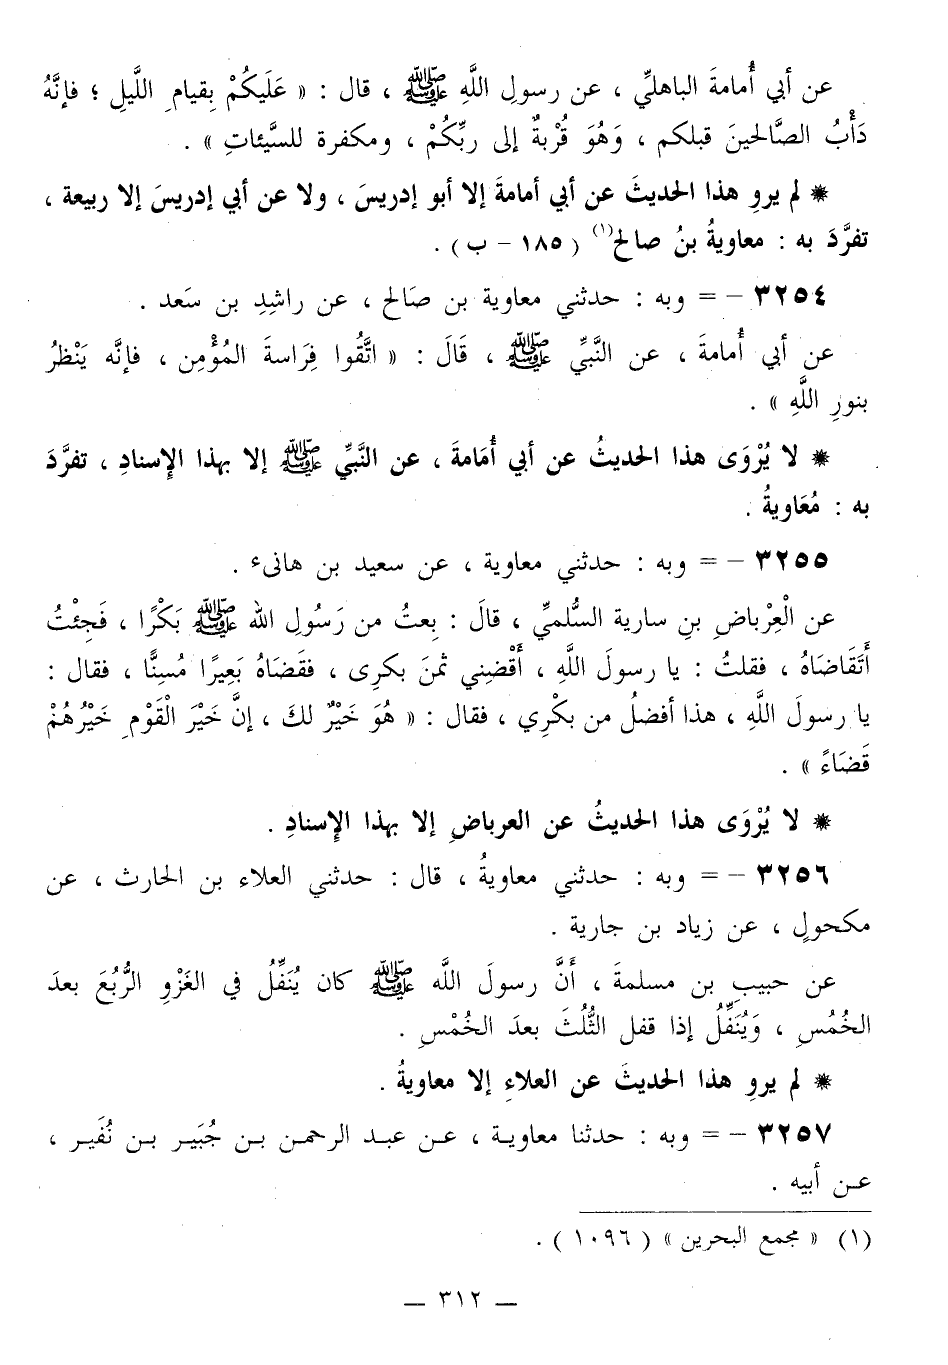 عن أبي أُمامةَ الباهليِّ ، عن رسولِ اللَّهِ ﷺ ، قال : « عَلَيكُمْ بِقيامِ اللَّيلِ ؛ فإنَّهُ
دَأْبُ الصَّالحينَ قبلكم ، وَهُوَ قُرْبةٌ إلى ربِّكُمْ ، ومكفرة للسَّيئاتِ » .
* لم يروِ هذا الحديثَ عن أبي أمامةَ إلا أبو إدريسَ ، ولا عن أبي إدريسَ إلا ربيعة ،
تفرَّدَ به : معاويةُ بنُ صالح(١) ( ١٨٥ - ب ) .
٣٢٥٤ - = وبه : حدثني معاوية بن صَالح ، عن راشِدِ بن سَعد .
عن أبي أُمامةَ ، عن النَّبيِّ ﷺ ، قَالَ : « اتَّقُوا فِراسةَ المُؤْمِن ، فإنَّه يَنْظرُ
بنورِ اللَّهِ » .
* لا يُرْوَى هذا الحديثُ عن أبي أُمَامةَ ، عن النَّبيِّ ﷺ إلا بهذا الإسنادِ ، تفرَّدَ
به : مُعَاويةُ .
٣٢٥٥ - = وبه : حدثني معاوية ، عن سعيد بن هانىء .
عن الْعِرْباضِ بنِ سارية السُّلميِّ ، قالَ : بِعتُ من رَسُولِ الله ﷺ بَكْرًا ، فَجِئْتُ
أَتَقَاضَاهُ ، فقلتُ : يا رسولَ اللَّهِ ، أَقْضِني ثمنَ بكرى ، فقَضَاهُ بَعِيرًا مُسِنًّا ، فقال :
يا رسولَ اللَّهِ ، هذا أفضلُ من بكْرِي ، فقال : « هُوَ خَيْرٌ لكَ ، إنَّ خَيْرَ الْقَوْمِ خَيْرُهُمْ
قَضَاءً » .
* لا يُرْوَى هذا الحديثُ عن العرباضِ إلا بهذا الإسنادِ .
٣٢٥٦ - = وبه : حدثني معاويةُ ، قال : حدثني العلاء بن الحارث ، عن
مكحولٍ ، عن زياد بن جارية .
عن حبيبِ بن مسلمةَ ، أَنَّ رسولَ اللَّه ﷺ كان يُنَفِّلُ في الغَزْوِ الرُّبُعَ بعدَ
الخُمُسِ ، وَيُنَفِّلُ إذا قفل الثُّلُثَ بعدَ الخُمْسِ .
* لم يروِ هذا الحديثَ عن العلاءِ إلا معاويةُ .
٣٢٥٧ - = وبه : حدثنا معاوية ، عن عبد الرحمن بن جُبَير بن نُفَير ،
عن أبيه .
(١) « مجمع البحرين » ( ١٠٩٦ ) .
— ٣١٢ —